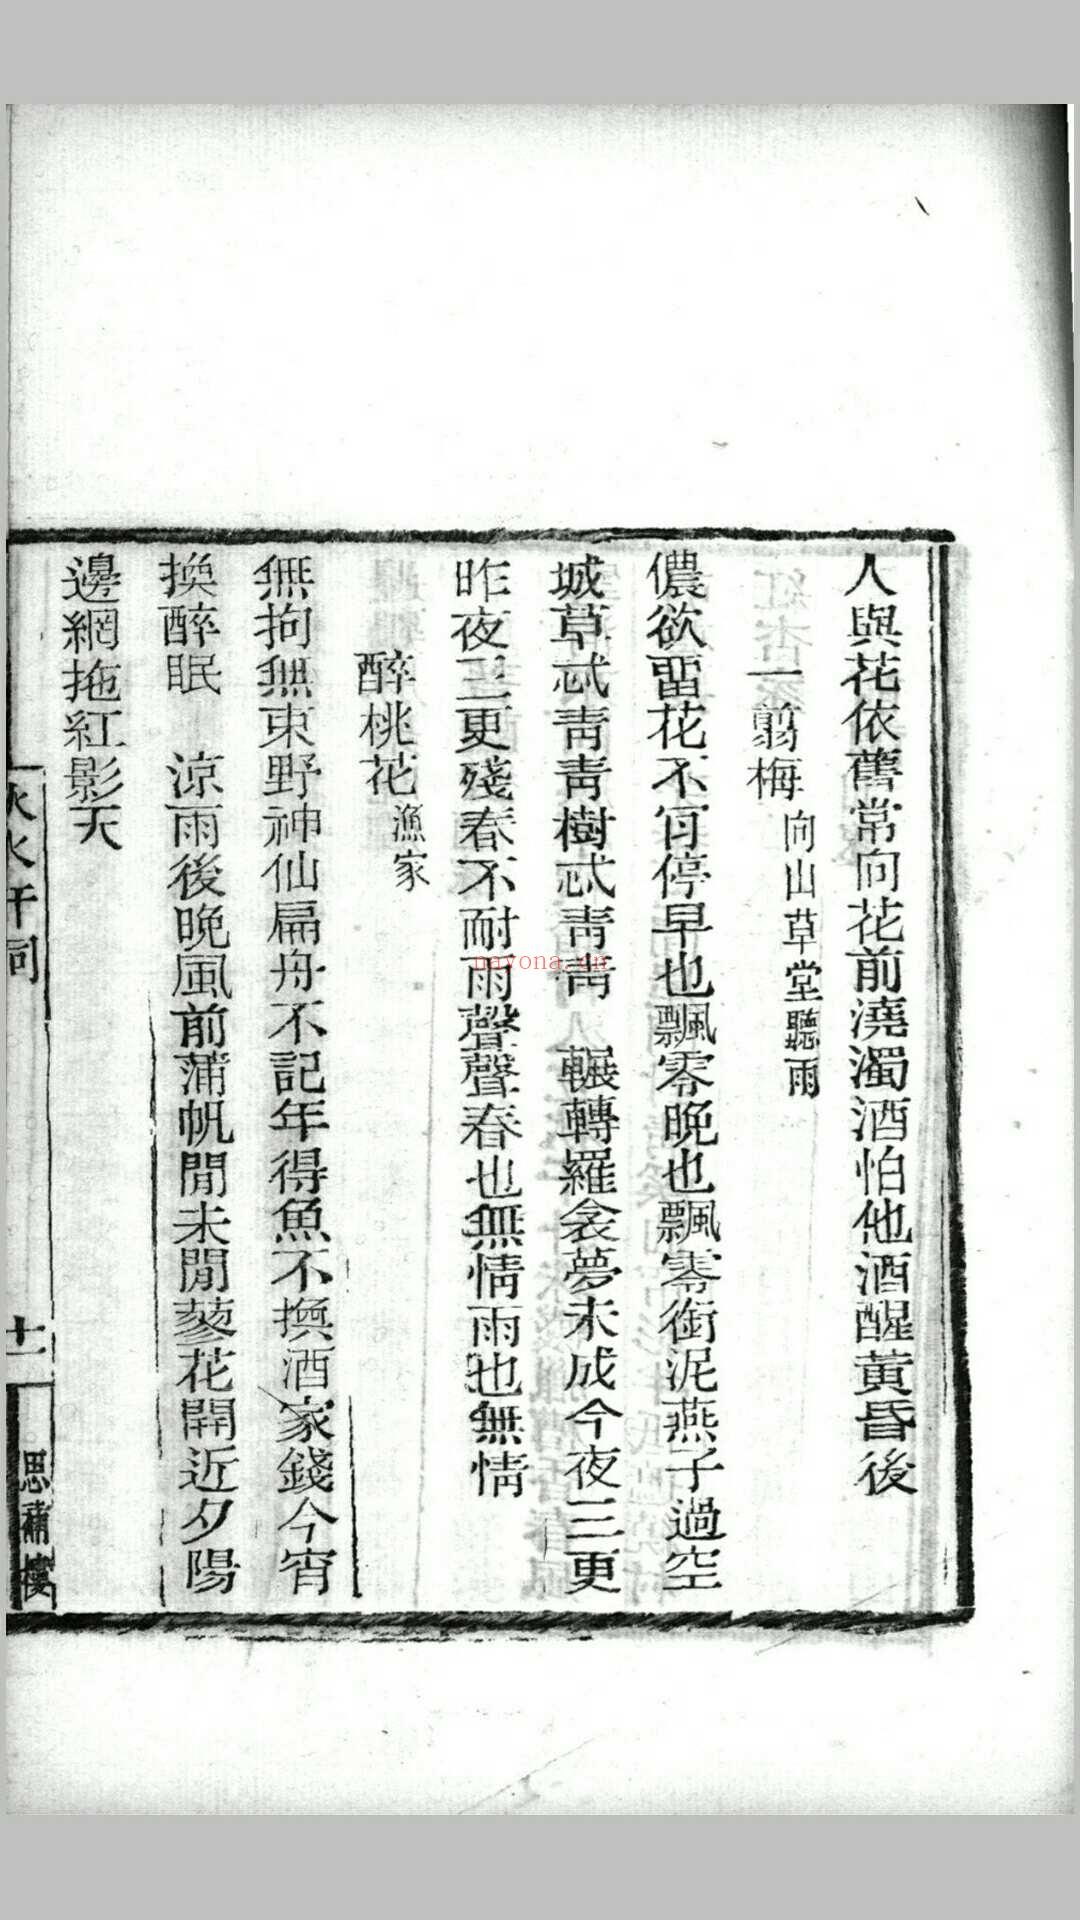 人與花依舊常向花前澆濁酒怕他酒醒黃昏後
一翦梅 向山草堂聽雨
儂欲畱花不肎停早也飄零晚也飄零銜泥燕子過空
城草忒靑靑樹忒靑靑 輾轉羅衾夢未成今夜三更
昨夜三更殘春不耐雨聲聲春也無情雨也無情
醉桃花 漁家
無拘無束野神仙扁舟不記年得魚不換酒家錢今宵
換醉眠 涼雨後晚風前蒲帆閒未閒蓼花開近夕陽
邊網拖紅影天
秋水軒詞
十一
思補樓
nayona.cn